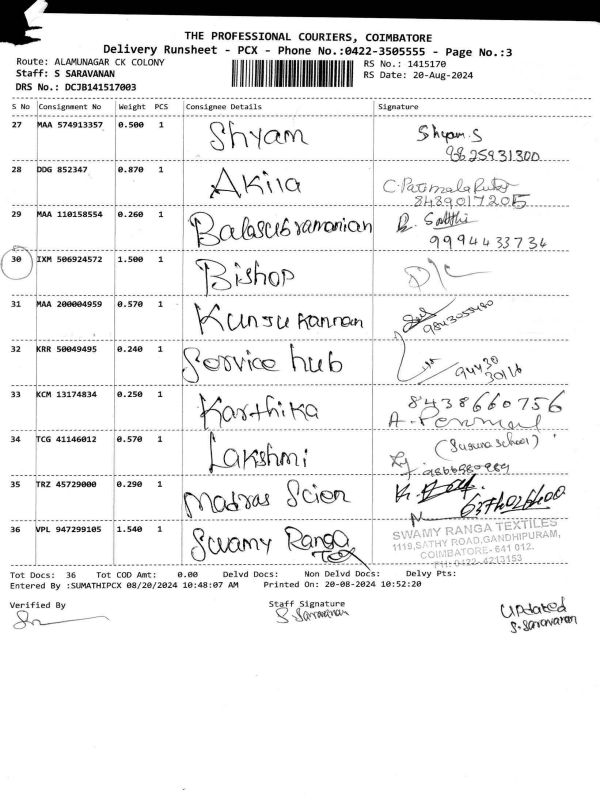 THE PROFESSIONAL COURIERS, COIMBATORE
Delivery Runsheet - PCX - Phone No.:0422-3505555 - Page No.:3
Route: ALAMUNAGAR CK COLONY
RS No.: 1415170
Staff: S SARAVANAN
RS Date: 20-Aug-2024
DRS No.: DCJB141517003
S No Consignment No Weight PCS Consignee Details Signature
27 MAA 574913357 0.500 1 Shyam Shyam.S
9825931300
28 DDG 852347 0.870 1 Akila
8489017205
29 MAA 110158554 0.260 1 Balasubramanian
9994433734
30 IXM 506924572 1.500 1 Bishop D/C
31 MAA 200004959 0.570 1 Kunjukannan
32 KRR 50049495 0.240 1 Service hub
94430
33 KCM 13174834 0.250 1 Karthika 8438660756
34 TCG 41146012 0.570 1 Lakshmi
35 TRZ 45729000 0.290 1 Madras Scion
36 VPL 947299105 1.540 1 Swamy Ranga
Tex
SWAMY RANGA TEXTILES
1119, SATHY ROAD, GANDHIPURAM,
COIMBATORE- 641 012.
PH: 0422-4213153
Tot Docs: 36 Tot COD Amt: 0.00 Delvd Docs: Non Delvd Docs: Delvy Pts:
Entered By :SUMATHIPCX 08/20/2024 10:48:07 AM Printed On: 20-08-2024 10:52:20
Verified By Staff Signature
S. Saravanan
Updated
S. Saravanan